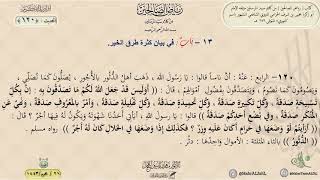 رياض الصالحين
الحديث (١٢٠)
١٣ - باب في بيان كثرة طرق الخير
١٢٠- الرابع : عَنْهُ : أَنَّ نَاسًا قالوا : يَا رَسُولَ اللهِ ، ذَهَبَ أَهْلُ الدُّثُورِ بالأُجُورِ ، يُصَلُّونَ كَمَا نُصَلِّي ،
وَيَصُومُونَ كَمَا نَصُومُ ، وَيَتَصَدَّقُونَ بِفُضُولِ أَمْوَالِهِمْ ، قَالَ : (( أَوَلَيسَ قَدْ جَعَلَ اللهُ لَكُمْ مَا تَصَدَّقُونَ بِهِ : إِنَّ بِكُلِّ
تَسْبِيحَةٍ صَدَقَةً ، وَكُلِّ تَكْبِيرَةٍ صَدَقَةً ، وَكُلِّ تَحْمِيدَةٍ صَدَقَةً ، وَكُلِّ تَهْلِيلَةٍ صَدَقَةً ، وَأَمْرٌ بِالمَعْرُوفِ صَدَقَةٌ ، وَنَهْيٌ عَنِ
المُنْكَرِ صَدَقَةٌ ، وَفِي بُضْعِ أَحَدِكُمْ صَدَقَةٌ )) قَالُوا : يَا رَسُولَ اللهِ ، أَيَأْتِي أَحَدُنَا شَهْوَتَهُ وَيَكُونُ لَهُ فِيهَا أَجْرٌ ؟ قَالَ :
(( أَرَأَيْتُمْ لَوْ وَضَعَهَا فِي حَرَامٍ أَكَانَ عَلَيهِ وِزْرٌ ؟ فكَذلِكَ إِذَا وَضَعَهَا فِي الحَلَالِ كَانَ لَهُ أَجْرٌ )) رواه مسلم .
(( الدُّثُورُ )) بالثاء المثلثة : الأموال وَاحِدُهَا : دَثْرٌ .